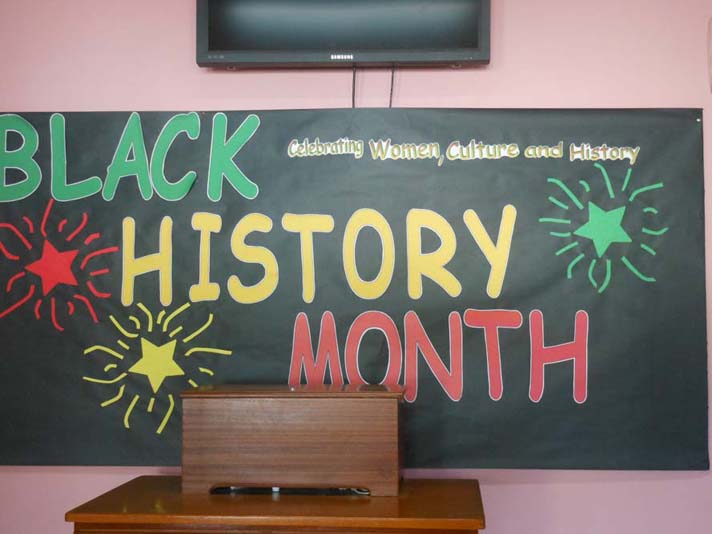 SAMSUNG
BLACK
Celebrating Women, Culture and History
HISTORY
MONTH